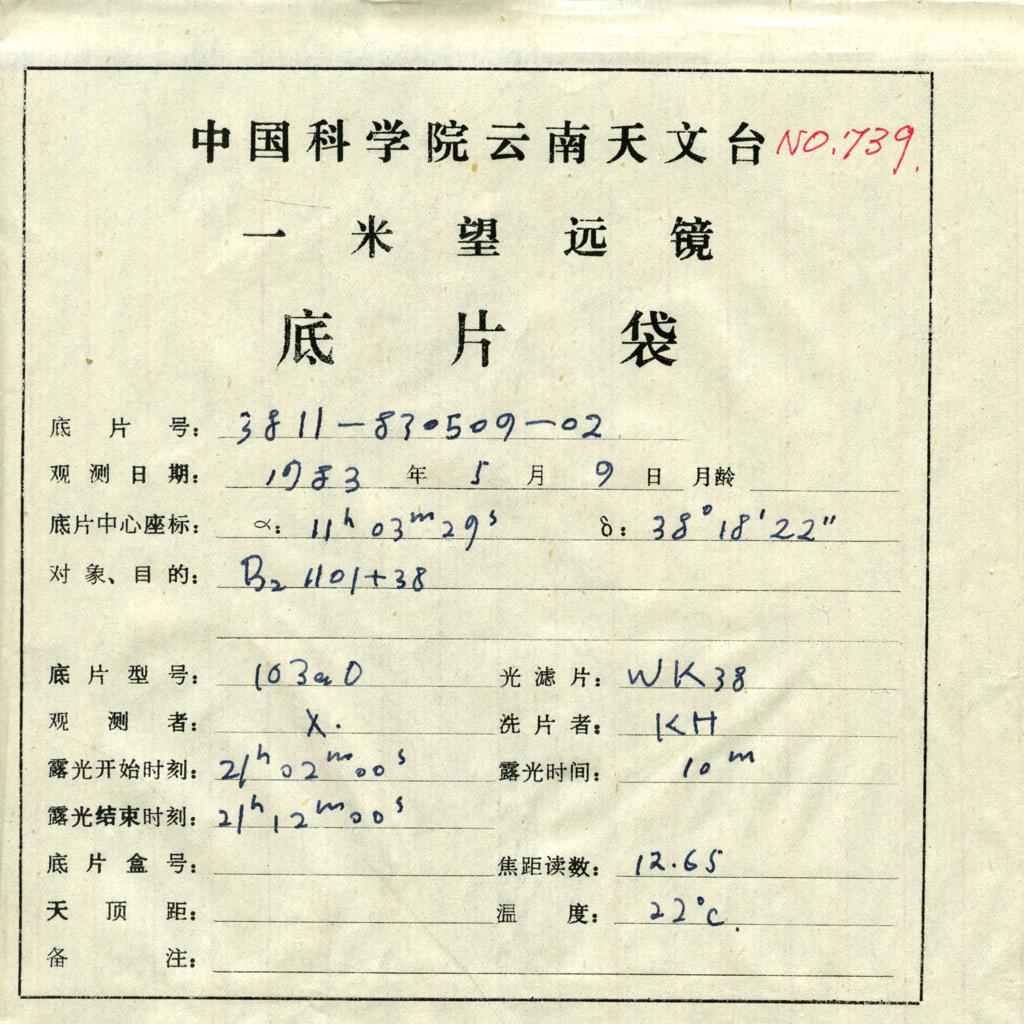 中国科学院云南天文台 NO.739.
一米望远镜
底片袋
底片号: 3811-830509-02
观测日期: 1983年5月9日 月龄
底片中心座标: α: 11h 03m 29s δ: 38°18'22"
对象、目的: B2 1101+38
底片型号: 103aO 光滤片: WK38
观测者: X. 洗片者: KH
露光开始时刻: 21h 02m 00s 露光时间: 10m
露光结束时刻: 21h 12m 00s
底片盒号: 焦距读数: 12.65
天顶距: 温度: 22°C.
备注: